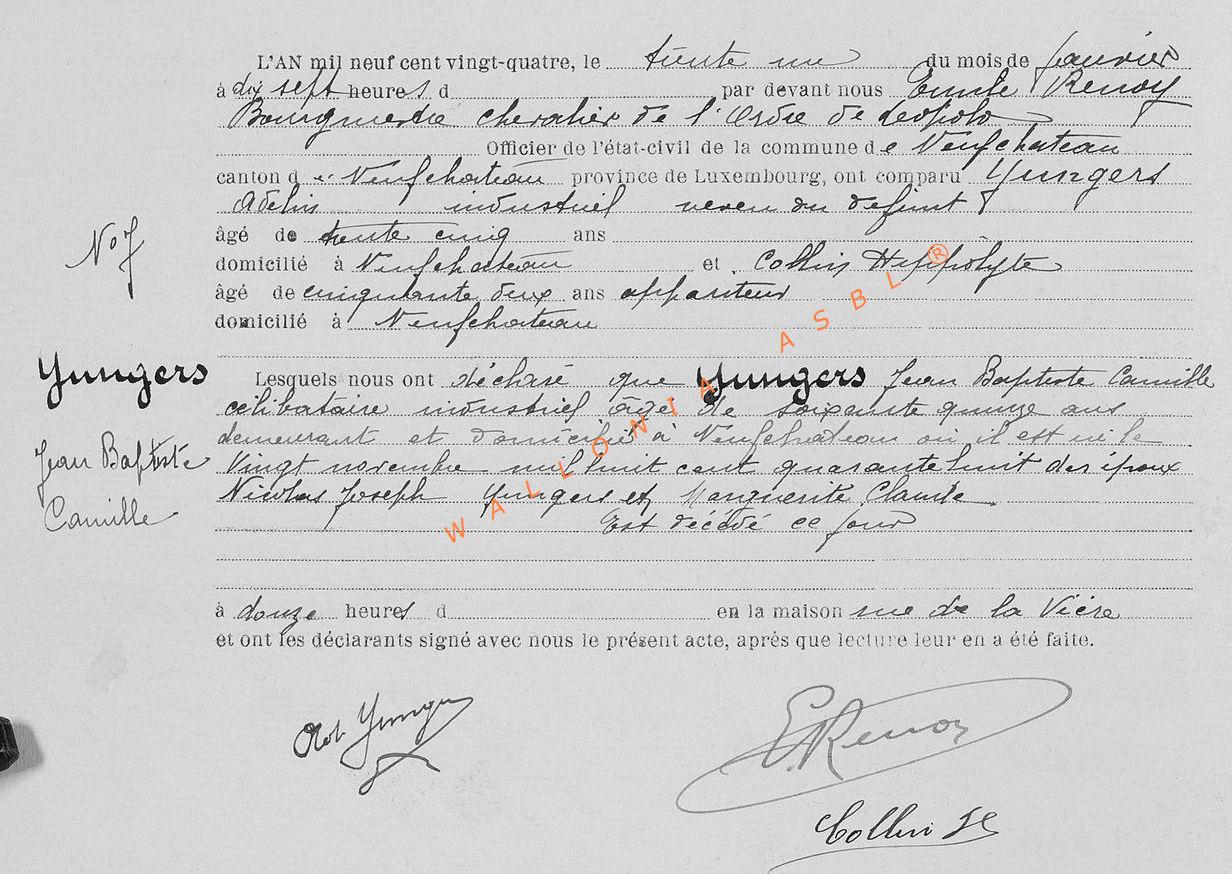 L'AN mil neuf cent vingt-quatre, le trente une du mois de Janvier
à dix sept heures d par devant nous Emile Renoy
Bourgmestre chevalier de l'Ordre de Léopold
Officier de l'état-civil de la commune de Neufchateau
canton de Neufchateau province de Luxembourg, ont comparu Yungers
Adelin industriel neveu du défunt
âgé de trente cinq ans
N° 7
domicilié à Neufchateau et Collin Hippolyte
âgé de cinquante deux ans appariteur
domicilié à Neufchateau
Yungers
Lesquels nous ont déclaré que Yungers Jean Baptiste Camille
célibataire industriel âgé de soixante quinze ans
demeurant et domicilié à Neufchateau où il est né le
Jean Baptiste
vingt novembre mil huit cent quarante huit des époux
Nicolas Joseph Yungers et Marguerite Claude
Camille
Est décédé ce jour
à douze heures d en la maison rue de la
et ont les déclarants signé avec nous le présent acte, après que lecture leur en a été faite.
Yungers
E. Renoy
Collin H
WALLONIA ASBL ®